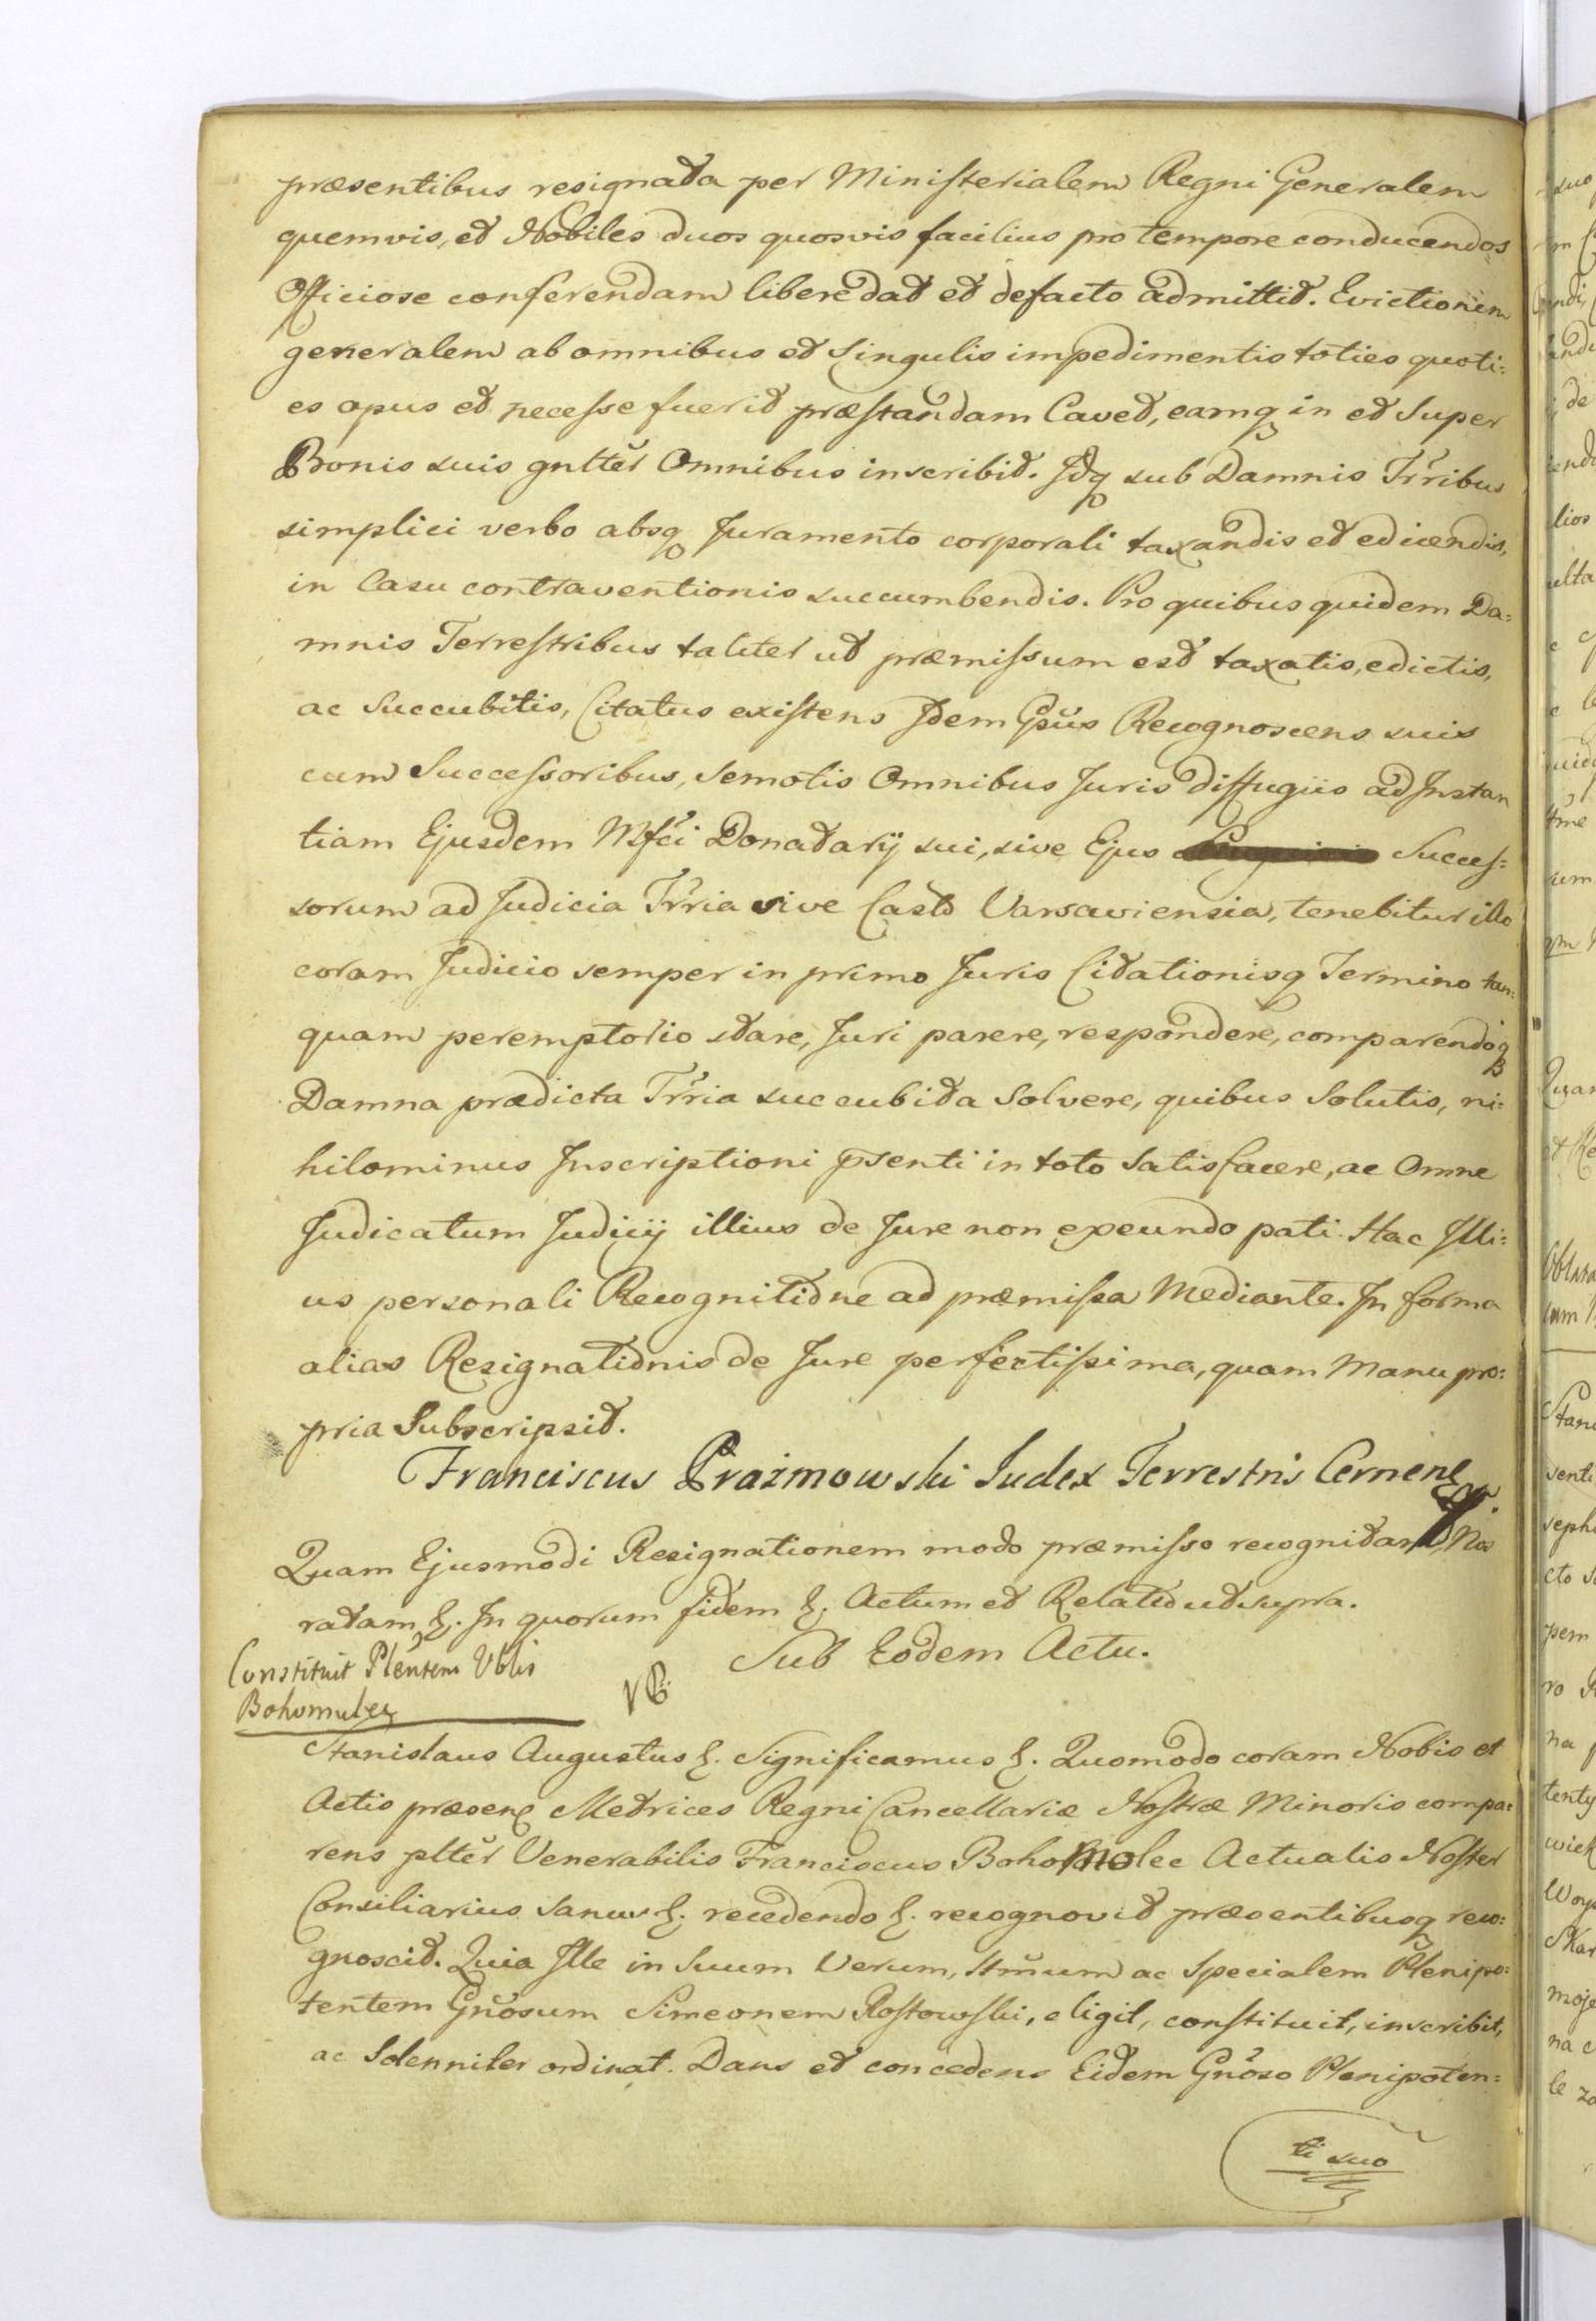 præsentibus resignata per Ministerialem Regni Generalem
quemvis, et Nobiles duos quosvis facilius pro tempore conducendos
Officiose conferendam libere dat et defacto admittit. Evictionem
generalem ab omnibus et Singulis impedimentis toties quoti=
es opus et necesse fuerit præstandam Cavet, eamq in et Super
Bonis suis gnlter Omnibus inscribit. Idq sub Damnis Trribus
simplici verbo absq Juramento corporali taxandis et edicendis,
in Casu contraventionis succumbendis. Pro quibus quidem Da=
mnis Terrestribus taliter ut præmissum est taxatis, edictis,
ac Succubitis, Citatus existens Idem Gsus Recognoscens suis
cum Successoribus, Semotis Omnibus Juris diffugiis ad Instan
tiam Ejusdem Mfci Donatarij sui, sive Ejus Succes=
sorum ad Judicia Trria sive Castr Varsaviensia, tenebitur illo
coram Judicio semper in primo Juris Citationisq Termino tan=
quam peremptorio stare, Juri parere, respondere, comparendoq
Damna prædicta Trria succubita Solvere, quibus Solutis, ni=
hilominus Inscriptioni psenti in toto Satisfacere, ac Omne
Judicatum Judicij illius de Jure non exeundo pati. Hac Illi=
us personali Recognitione ad præmissa Mediante. In forma
alias Resignationis de Jure perfectissima, quam Manu pro=
pria Subscripsit.
Franciscus Prazmowski Iudex Terrestris Cernen
Quam Ejusmodi Resignationem modo præmisso recognitam Nos
ratam &. In quorum fidem &. Actum et Relatio ut supra.
Sub Eodem Actu.
Constituit Plentem Vblis
Bohomulec
Stanislaus Augustus &. Significamus &. Quomodo coram Nobis et
Actis præsen Metrices Regni Cancellariæ Nostræ Minoris compa=
rens plter Venerabilis Franciscus Bohomolec Actualis Noster
Consiliarius Sanus &. recedendo &. recognovit præsentibusq reco=
gnoscit. Quia Ille in Suum Verum, Ltmum ac Specialem Plenipo=
tentem Gnosum Simeonem Rostowski, eligit, constituit, inscribit,
ac Solenniter ordinat. Dans et concedens Eidem Gnoso Plenipoten=
ti suo